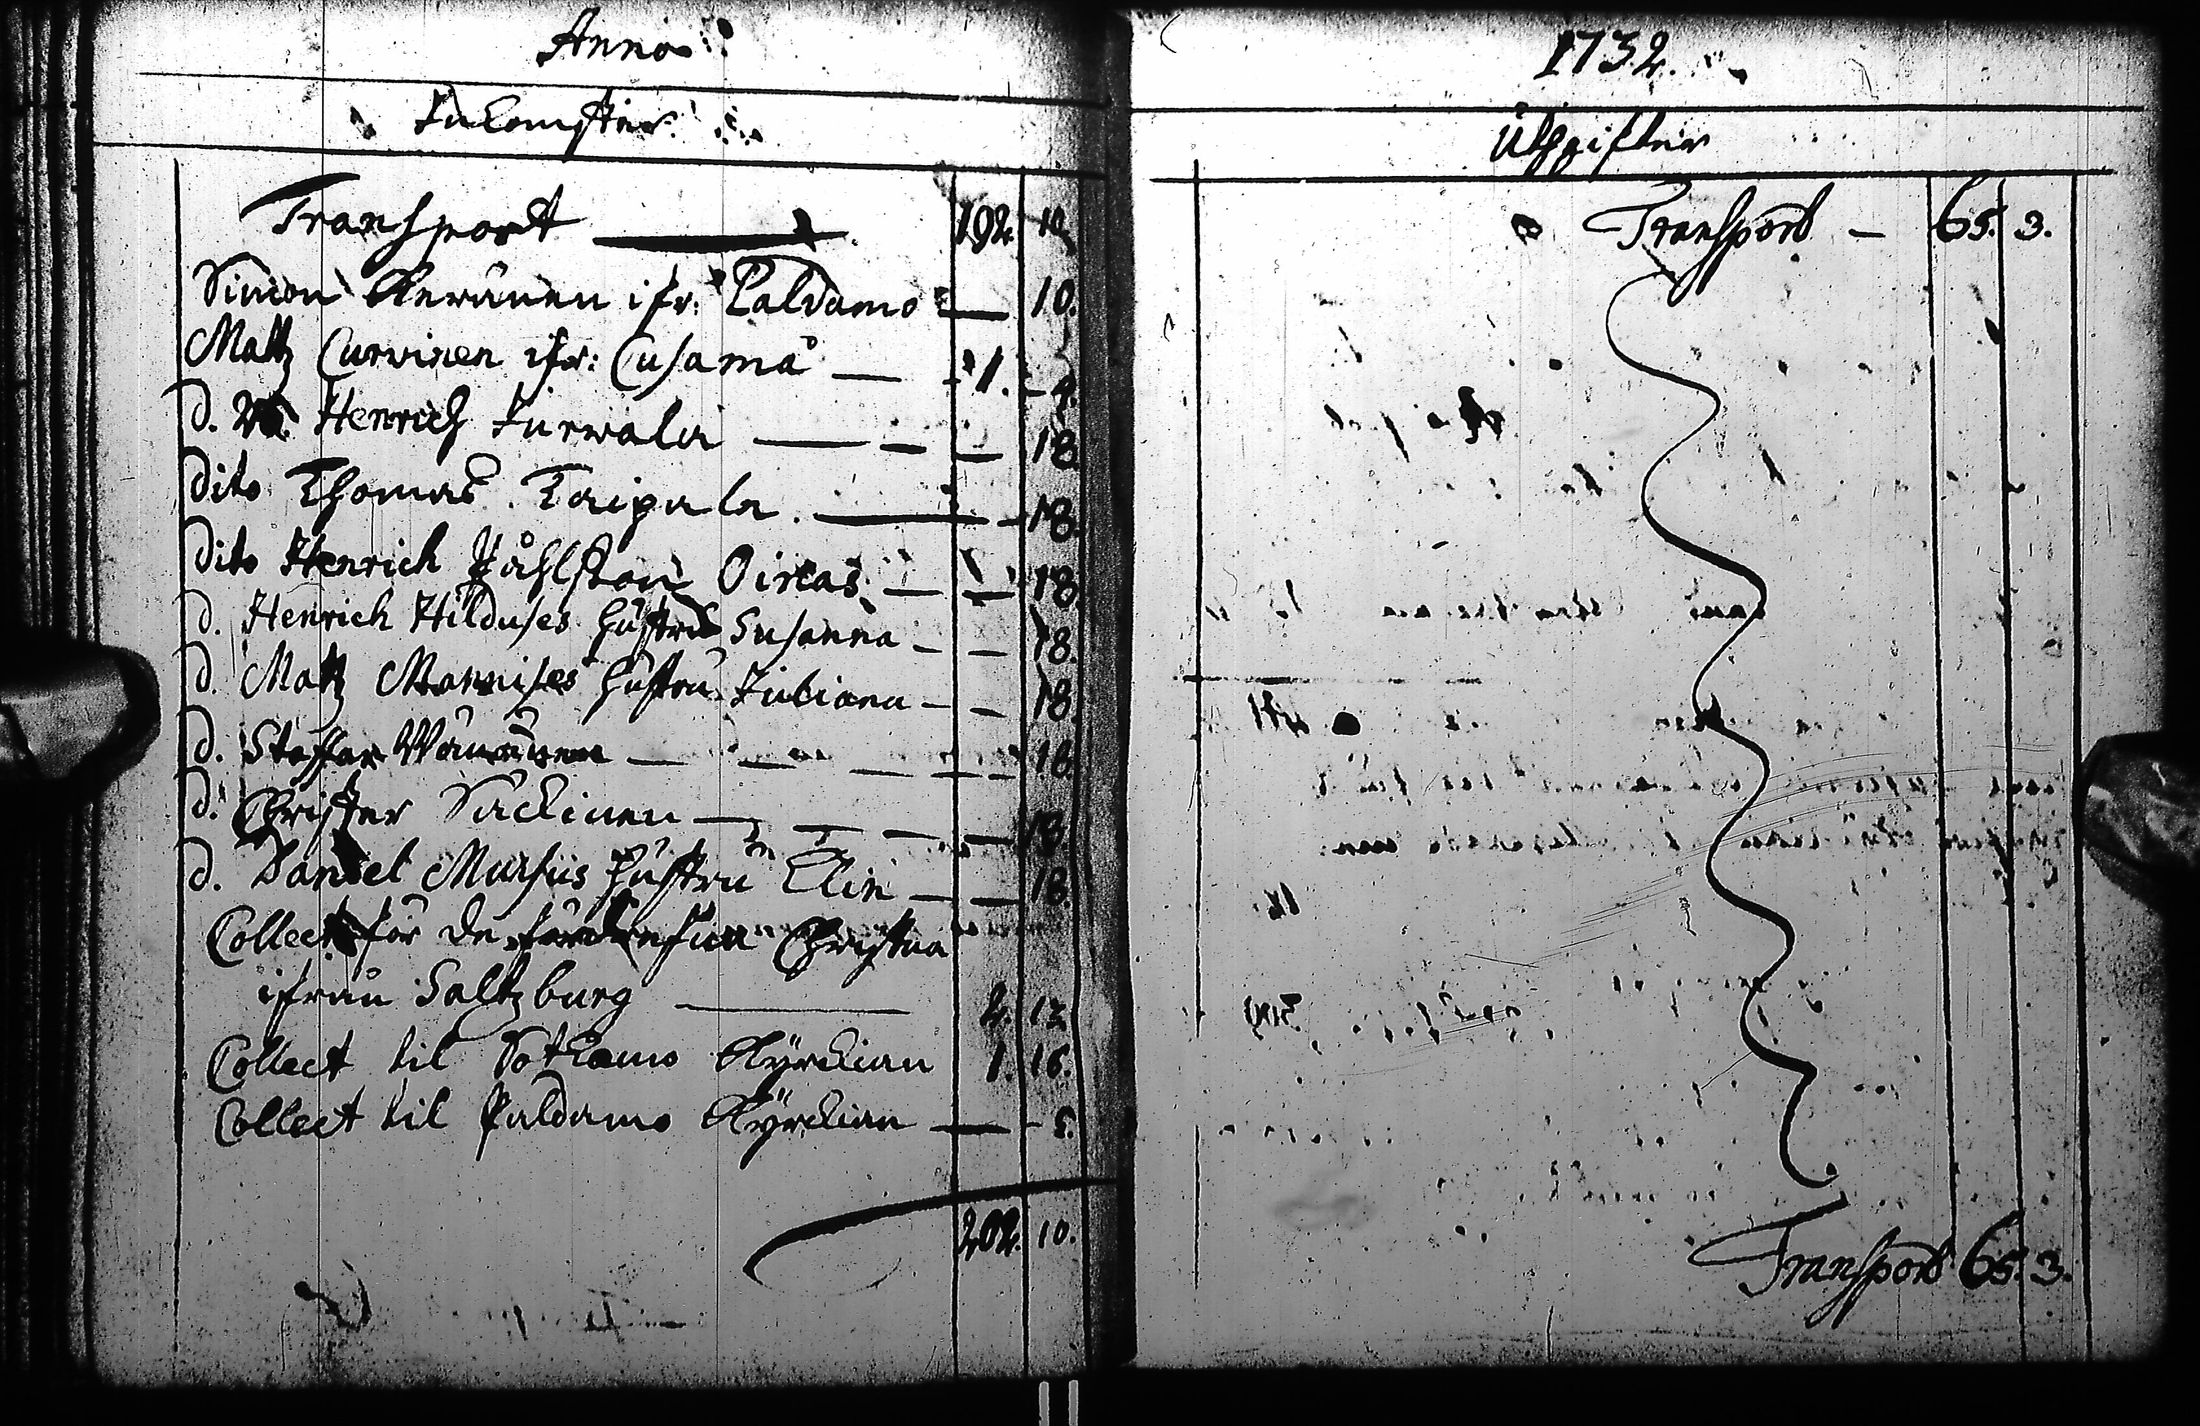 Anno
Inkomster
Transport — 192. 10
Simon Keränen ifr: Paldamo — 10.
Matz Curvinen ifr: Cusamå — 1. 4.
d. Henrich Turwala — — 18.
Dito Thomas Taipala. — 18.
Dito Henrich Påhlsson Oircas — — 18.
d. Henrich Hilduses hustru Susanna — — 18.
d. Matz Mannises hustru Juliana — — 18.
d. Staffar Wänänen — — — — 18.
d. Christer Säckinen — — — — 18.
d. Daniel Mursus hustru Elin — — 18.
Collect för de Christna
ifrån Saltzburg — 2. 12
Collect til Sotkamo Kyrckian 1. 16.
Collect til Paldamo Kyrckian — 5.
202. 10.
1732.
Utgifter
Transport — 65. 3.
Transport 65. 3.